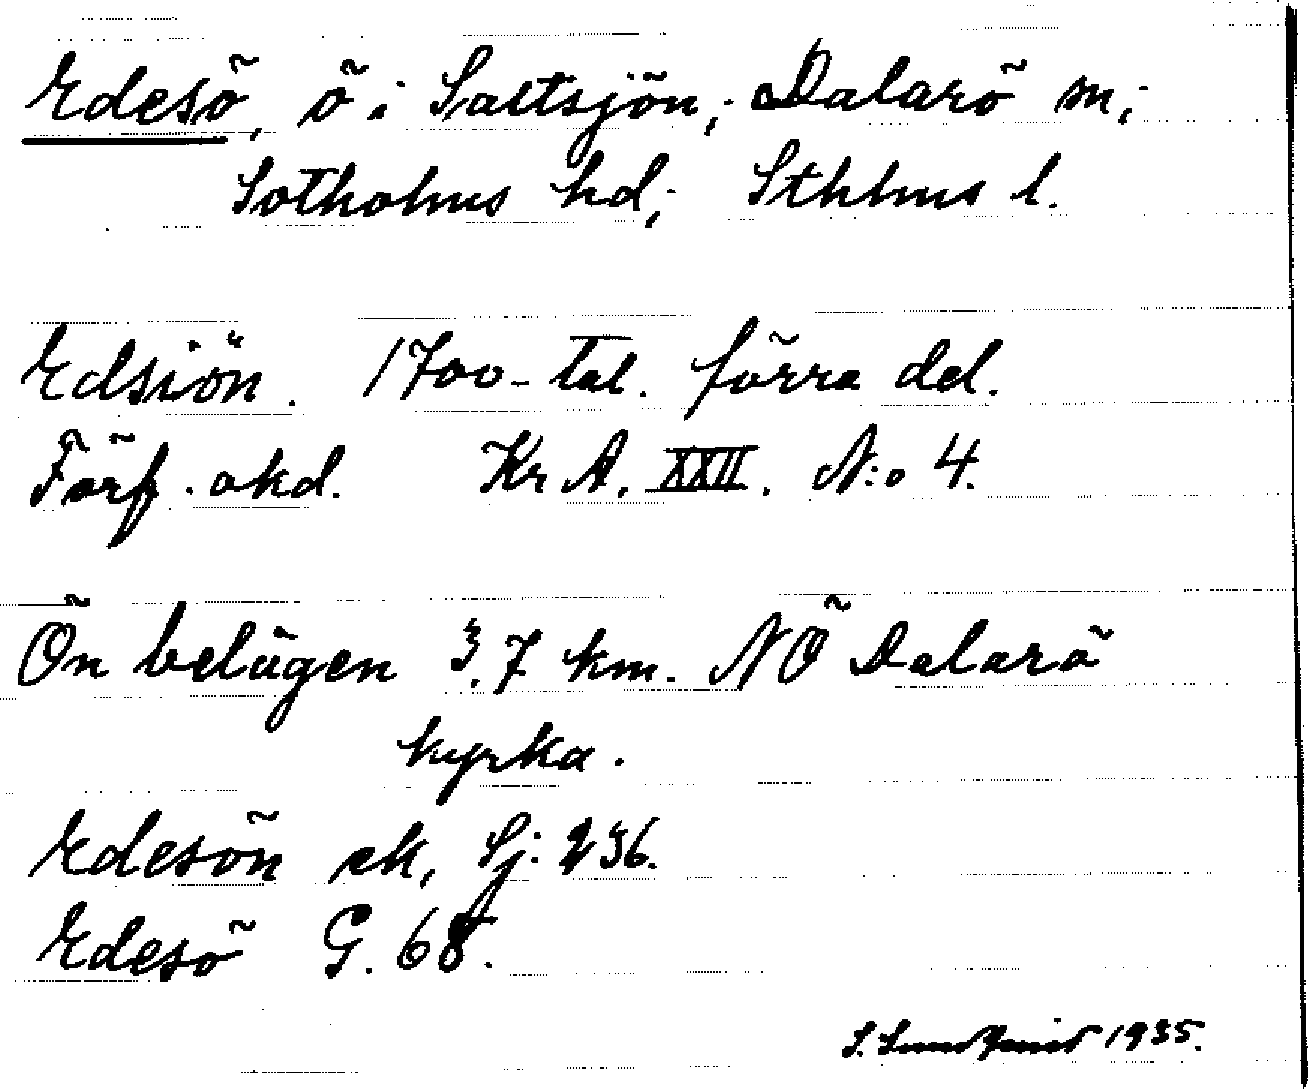 Edesö, ö i Saltsjön; Dalarö sn;
Sotholms hd; Sthlms l.
Edsiön. 1700-tal. förra del.
Förf. okd. Kr A. XXII. N:o 4.
Ön belägen 3,7 km. NÖ Dalarö
kyrka.
Edesön ek, Sj: 236.
Edesö G. 68.
S. Sundqvist 1935.